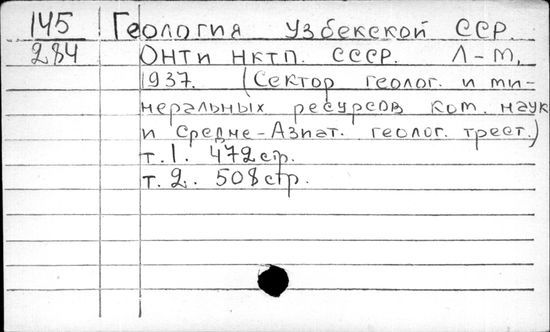 145 Геология Узбекской ССР.
284 ОНТИ НКТП. СССР. Л-М,
1937. (Сектор геолог. и ми-
неральных ресурсов Ком. наук
и Средне-Азиат. геолог. трест.)
т.1. 472стр.
т.2. 508стр.